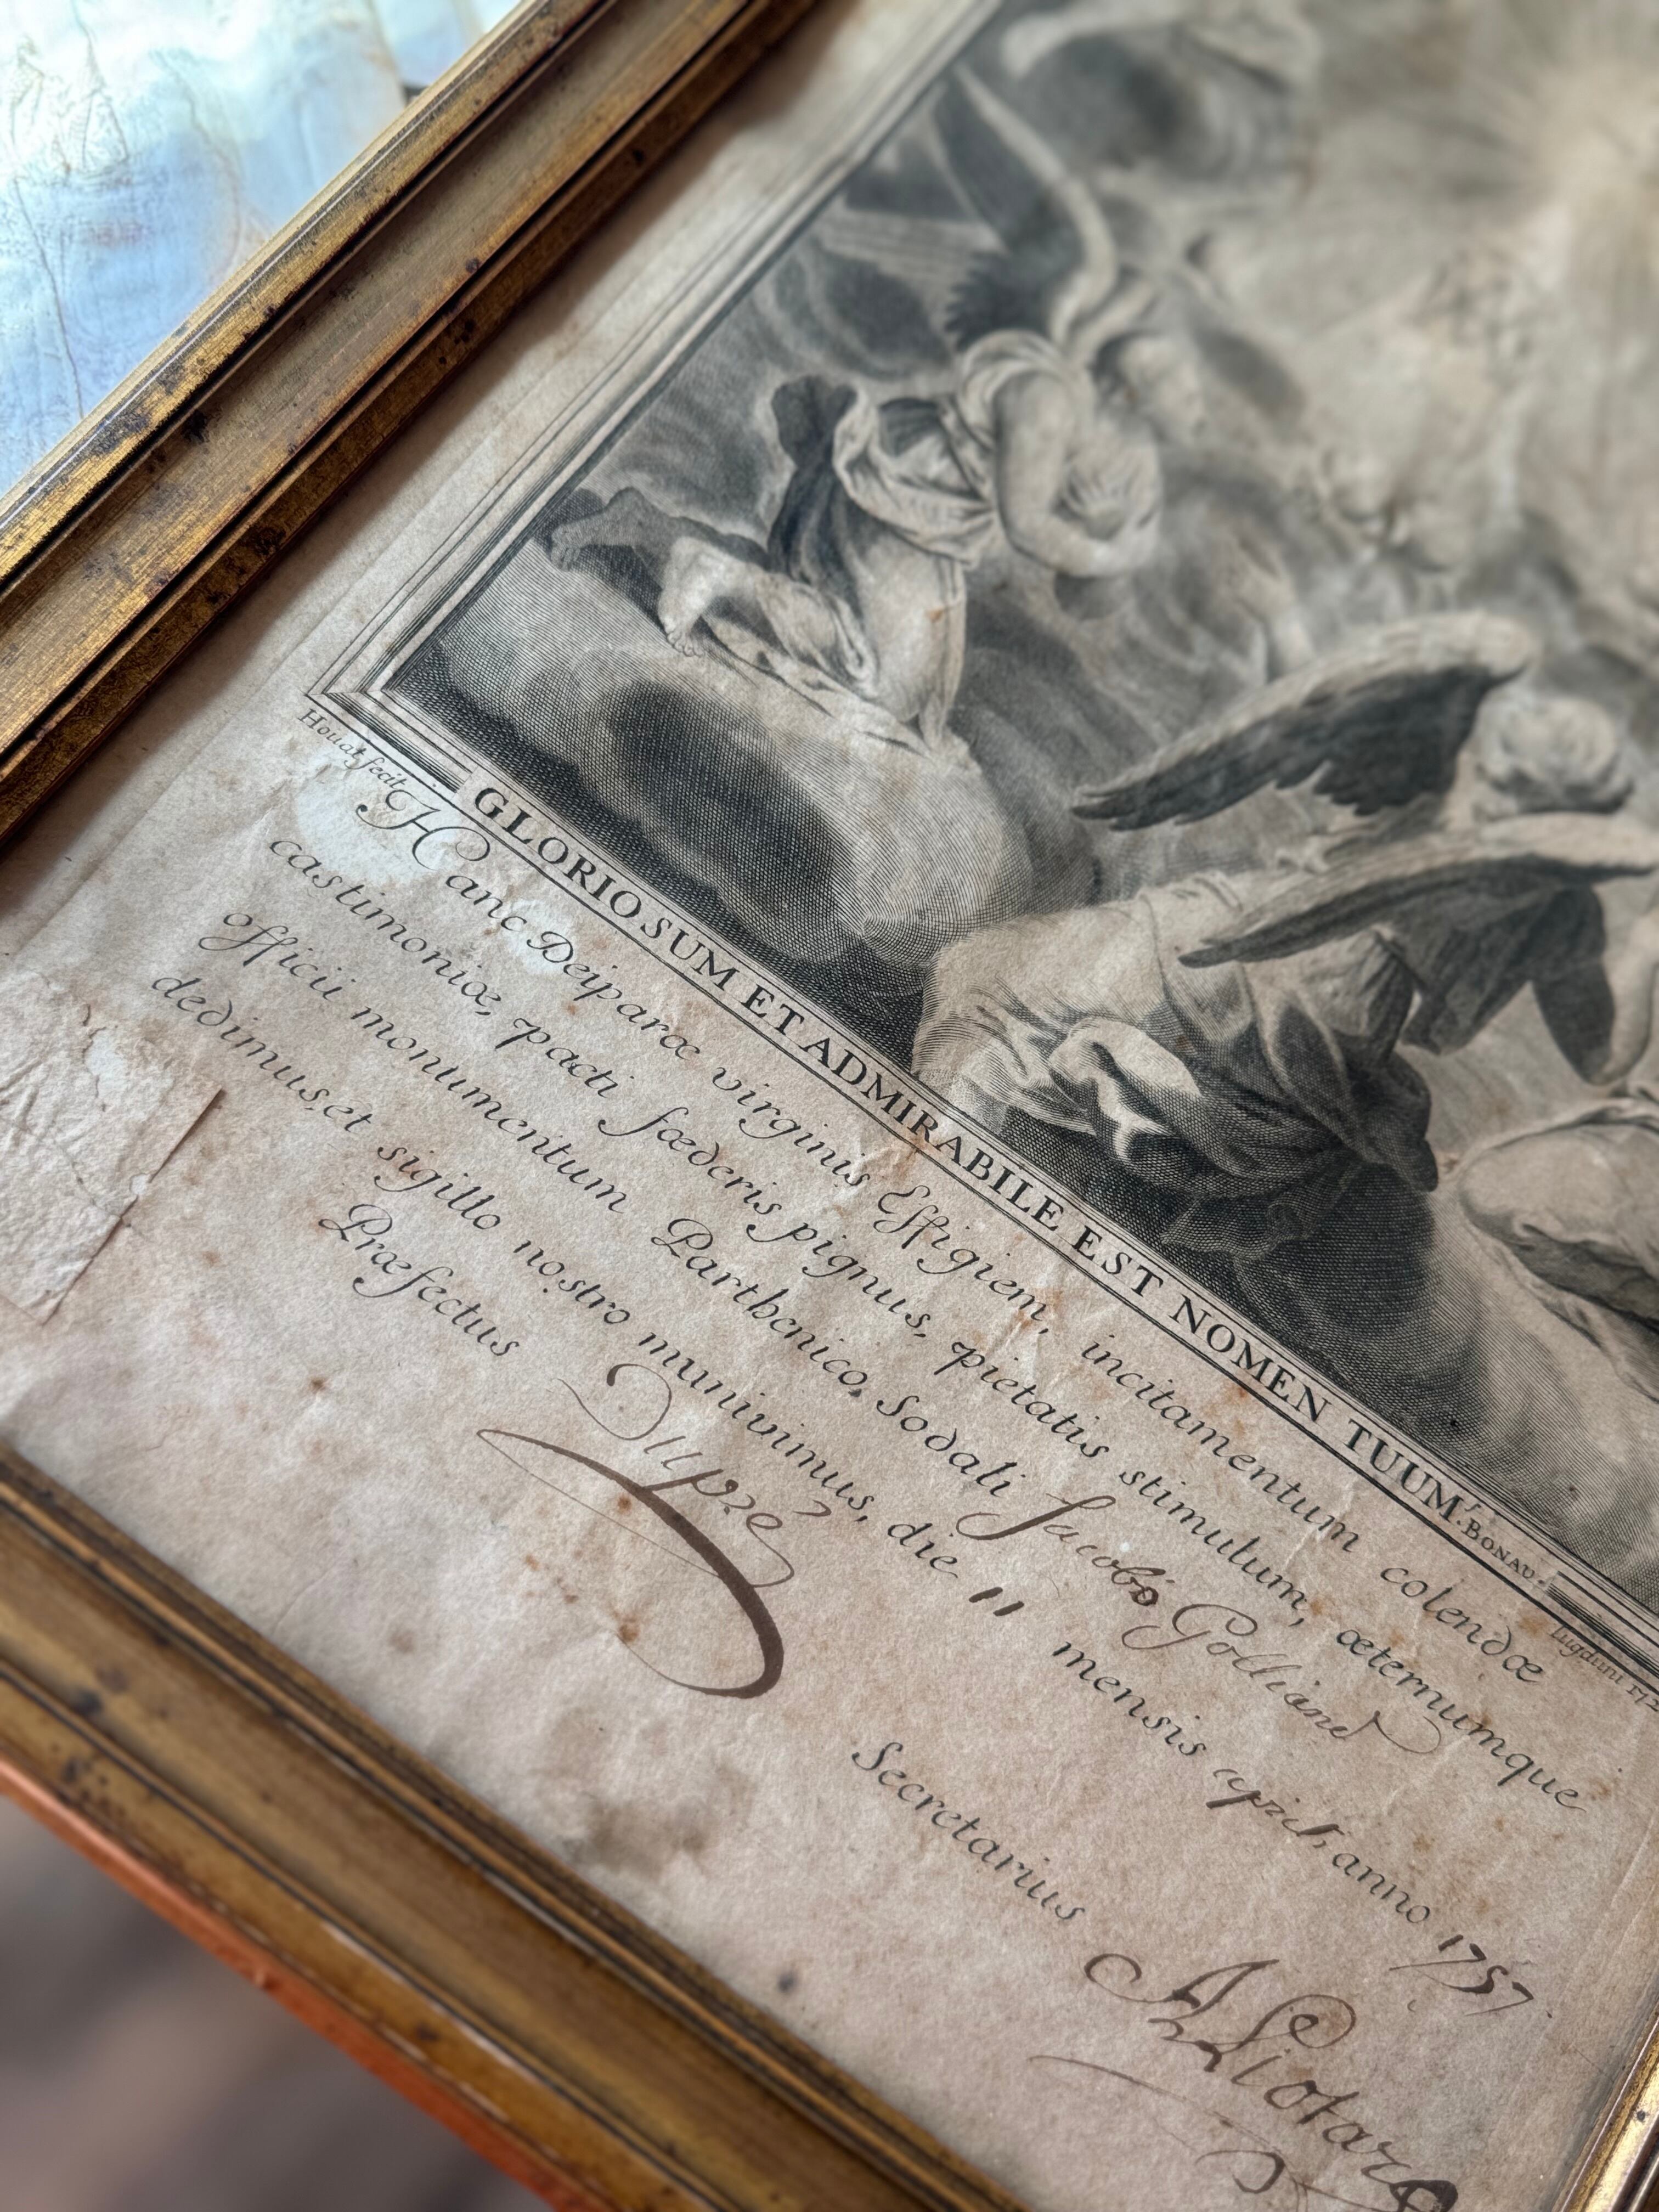 GLORIOSUM ET ADMIRABILE EST NOMEN TUUM. S. BONAU.
Houat fecit
Lugduni 172
Hanc Deiparæ virginis Effigiem, incitamentum colendæ
castimoniæ, pacti fœderis pignus, pietatis stimulum, æternumque
officii monumentum Parthenico, Sodali Jacobo Golliand
dedimus, et sigillo nostro munivimus, die 11 mensis april, anno 1757.
Præfectus Secretarius
Dupré A Liotard